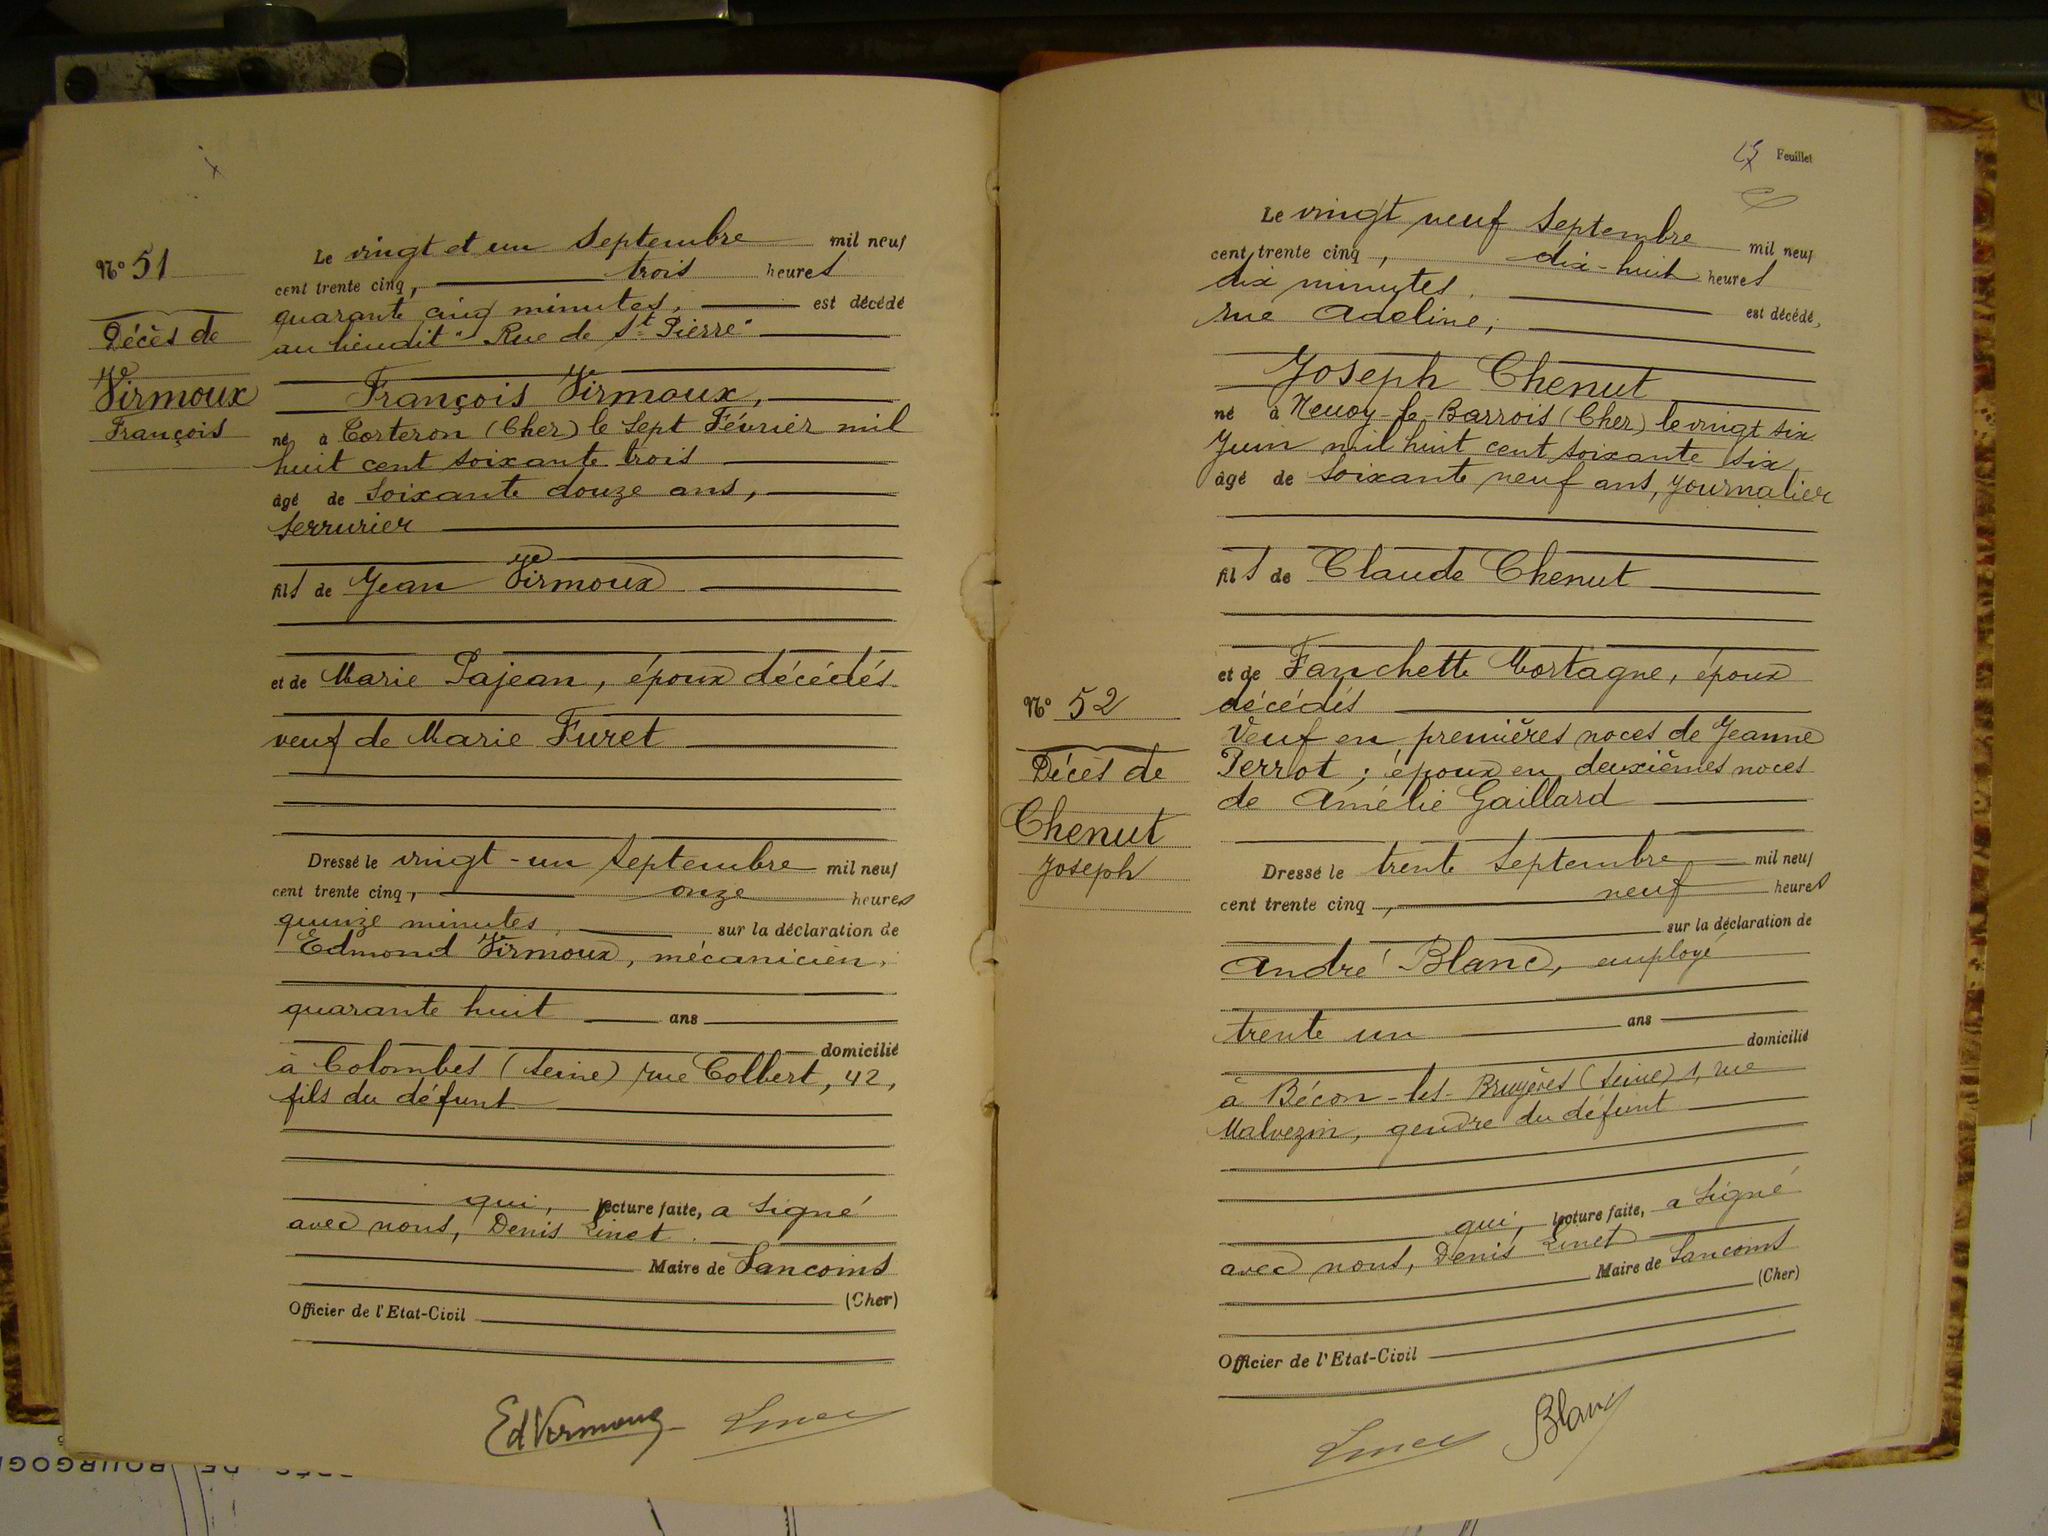 N° 51
Décès de
Virmoux
François
Le vingt et un Septembre mil neuf
cent trente cinq, trois heures
quarante cinq minutes, est décédé
au lieudit "Rue de St Pierre"
François Virmoux,
né à Corteron (Cher) le sept Février mil
huit cent soixante trois
âgé de soixante douze ans,
serrurier
fils de Jean Virmoux
et de Marie Pajean, époux décédés
veuf de Marie Furet
Dressé le vingt-un Septembre mil neuf
cent trente cinq, onze heures
quinze minutes sur la déclaration de
Edmond Virmoux, mécanicien,
quarante huit ans
domicilié
à Colombes (Seine) rue Colbert, 42,
fils du défunt
qui, lecture faite, a signé
avec nous, Denis Linet
Maire de Sancoins
(Cher)
Officier de l'Etat-Civil
Ed Virmoux Linet
Feuillet
N° 52
Décès de
Chenut
Joseph
Le vingt neuf Septembre mil neuf
cent trente cinq, dix-huit heures
dix minutes. est décédé,
rue Adeline,
Joseph Chenut
né à Neuvy-le-Barrois (Cher) le vingt six
Juin mil huit cent soixante six
âgé de soixante neuf ans, journalier
fils de Claude Chenut
et de Fanchette Mortagne, époux
décédés
Veuf en premières noces de Jeanne
Perrot ; époux en deuxièmes noces
de Amélie Gaillard
Dressé le trente Septembre mil neuf
cent trente cinq, neuf heures
sur la déclaration de
André Blanc, employé
trente un ans
domicilié
à Bécon-les-Bruyères (Seine) 1, rue
Malvezin, gendre du défunt
qui, lecture faite, a signé
avec nous, Denis Linet
Maire de Sancoins
(Cher)
Officier de l'Etat-Civil
Linet Blanc